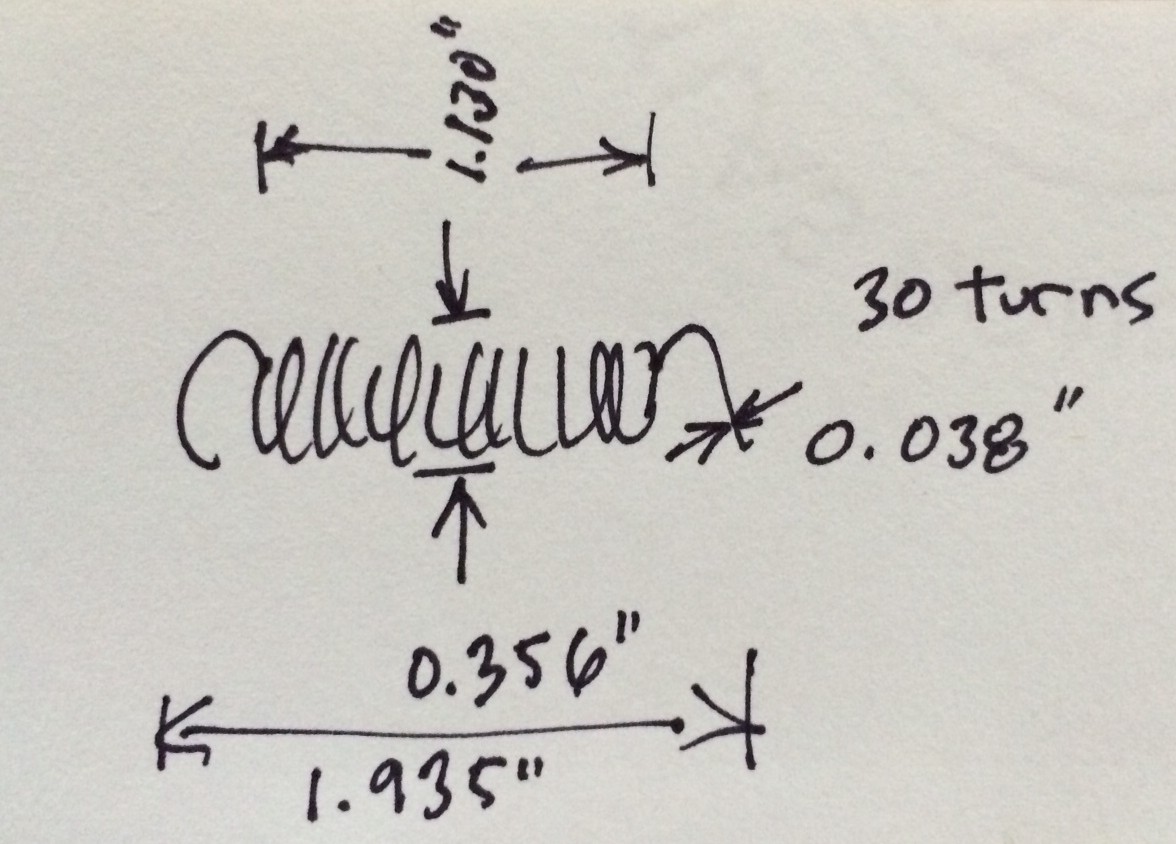 1.130"
30 turns
0.038"
0.356"
1.935"